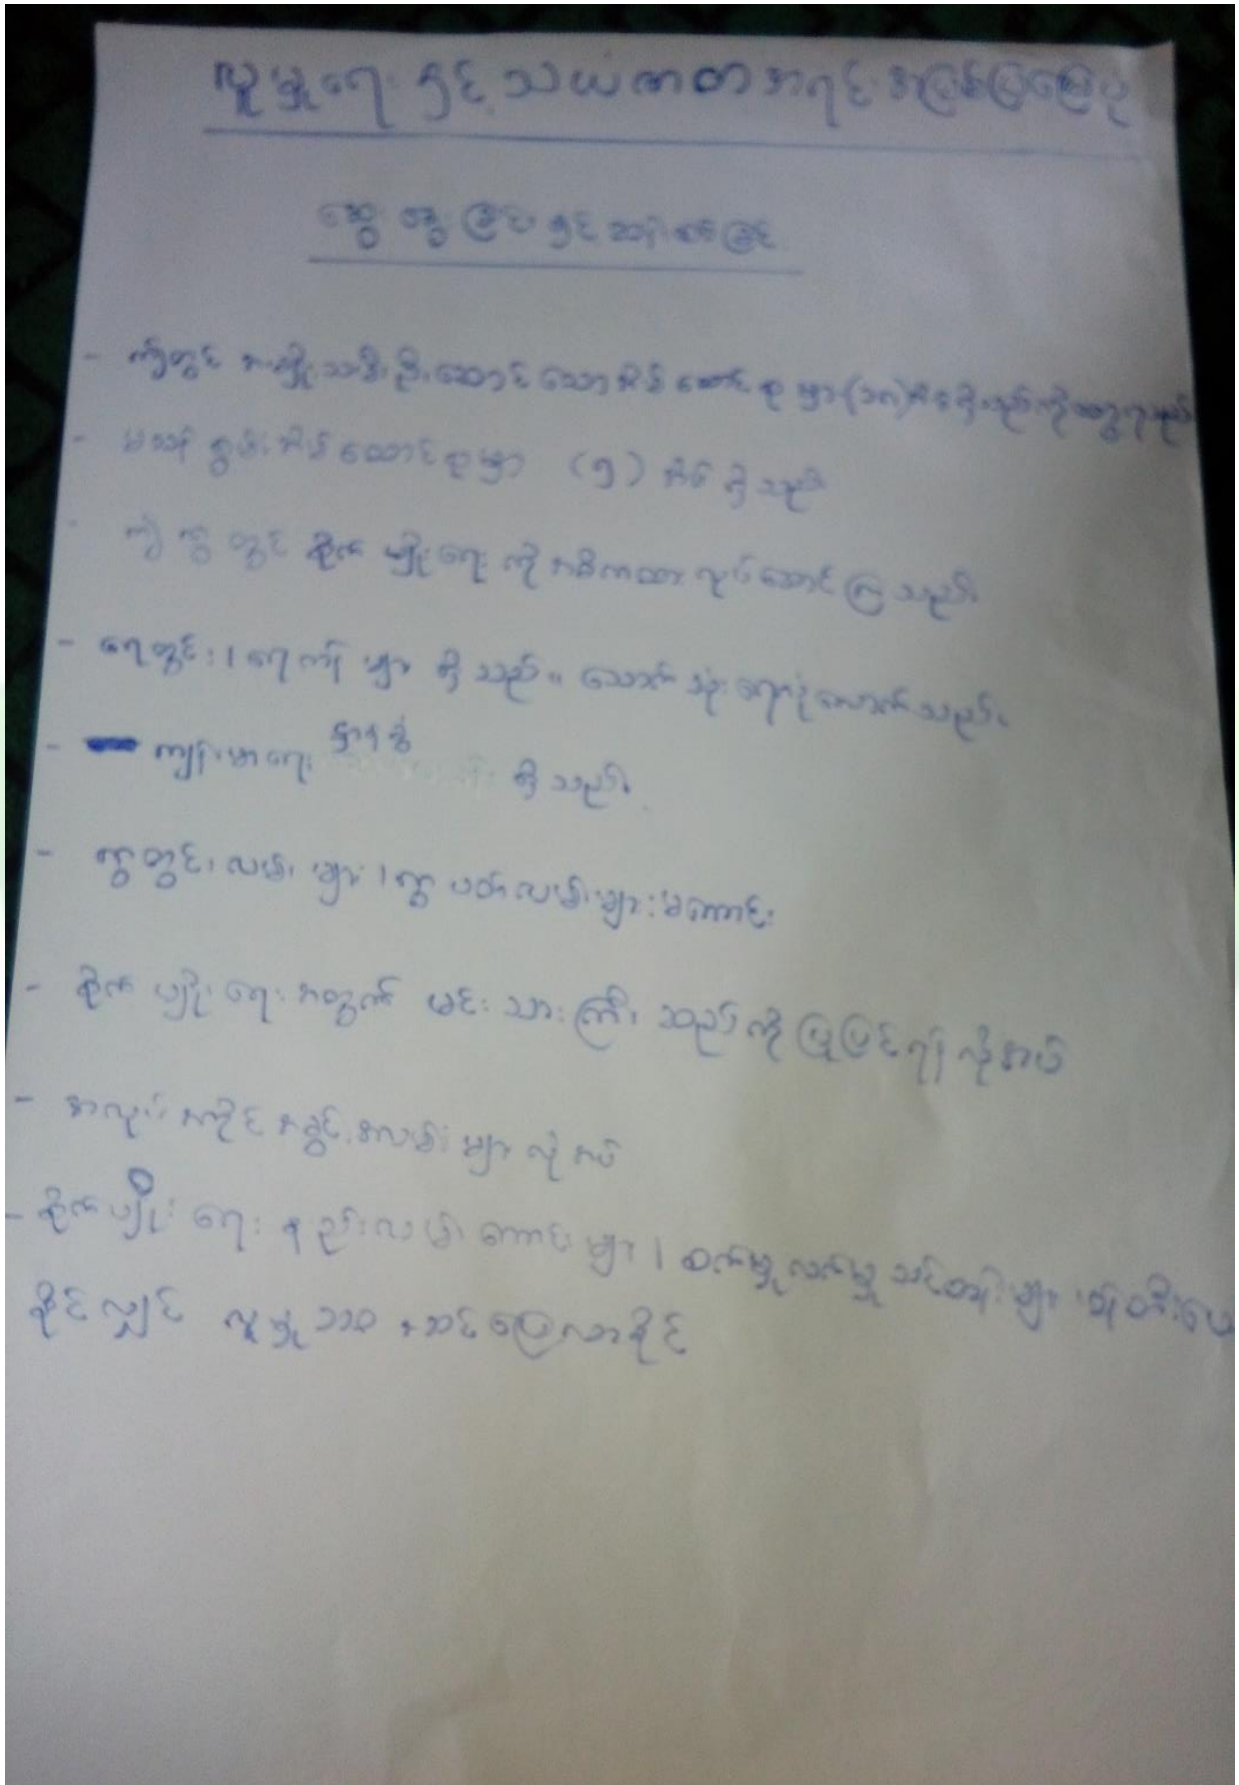 လူမှုရေးနှင့် သယံဇာတအရင်းအမြစ်ပြမြေပုံ
ဆွေးနွေးခြင်းနှင့်ဆန်းစစ်ခြင်း
- ကျွဲတွင် အမျိုးသမီးဦးဆောင်သောအိမ်ထောင်စုများ ( ) အိမ်ရှိသည်ကိုတွေ့ရသည်
- မသန်စွမ်းအိမ်ထောင်စုများ (၅) အိမ်ရှိသည်
ကျေးရွာတွင် စိုက်ပျိုးရေးကိုအဓိကထားလုပ်ဆောင်ကြသည်။
- ရေတွင်း၊ ရေကန်များ ရှိသည်။ သောက်သုံးရေလုံလောက်သည်။
- ကျန်းမာရေးဌာနခွဲ ရှိသည်။
- ရွာတွင်းလမ်းများ၊ ရွာပတ်လမ်းများမကောင်း
- စိုက်ပျိုးရေးအတွက် မင်းသားကြီးဆည်ကိုပြုပြင်ရန်လိုအပ်
- အလုပ်အကိုင်အခွင့်အလမ်းများလိုအပ်
- စိုက်ပျိုးရေးနည်းလမ်းကောင်းများ၊ စက်မှုလက်မှုသင်တန်းများ ပေး
နိုင်လျှင် လူမှုဘဝအဆင်ပြေလာနိုင်